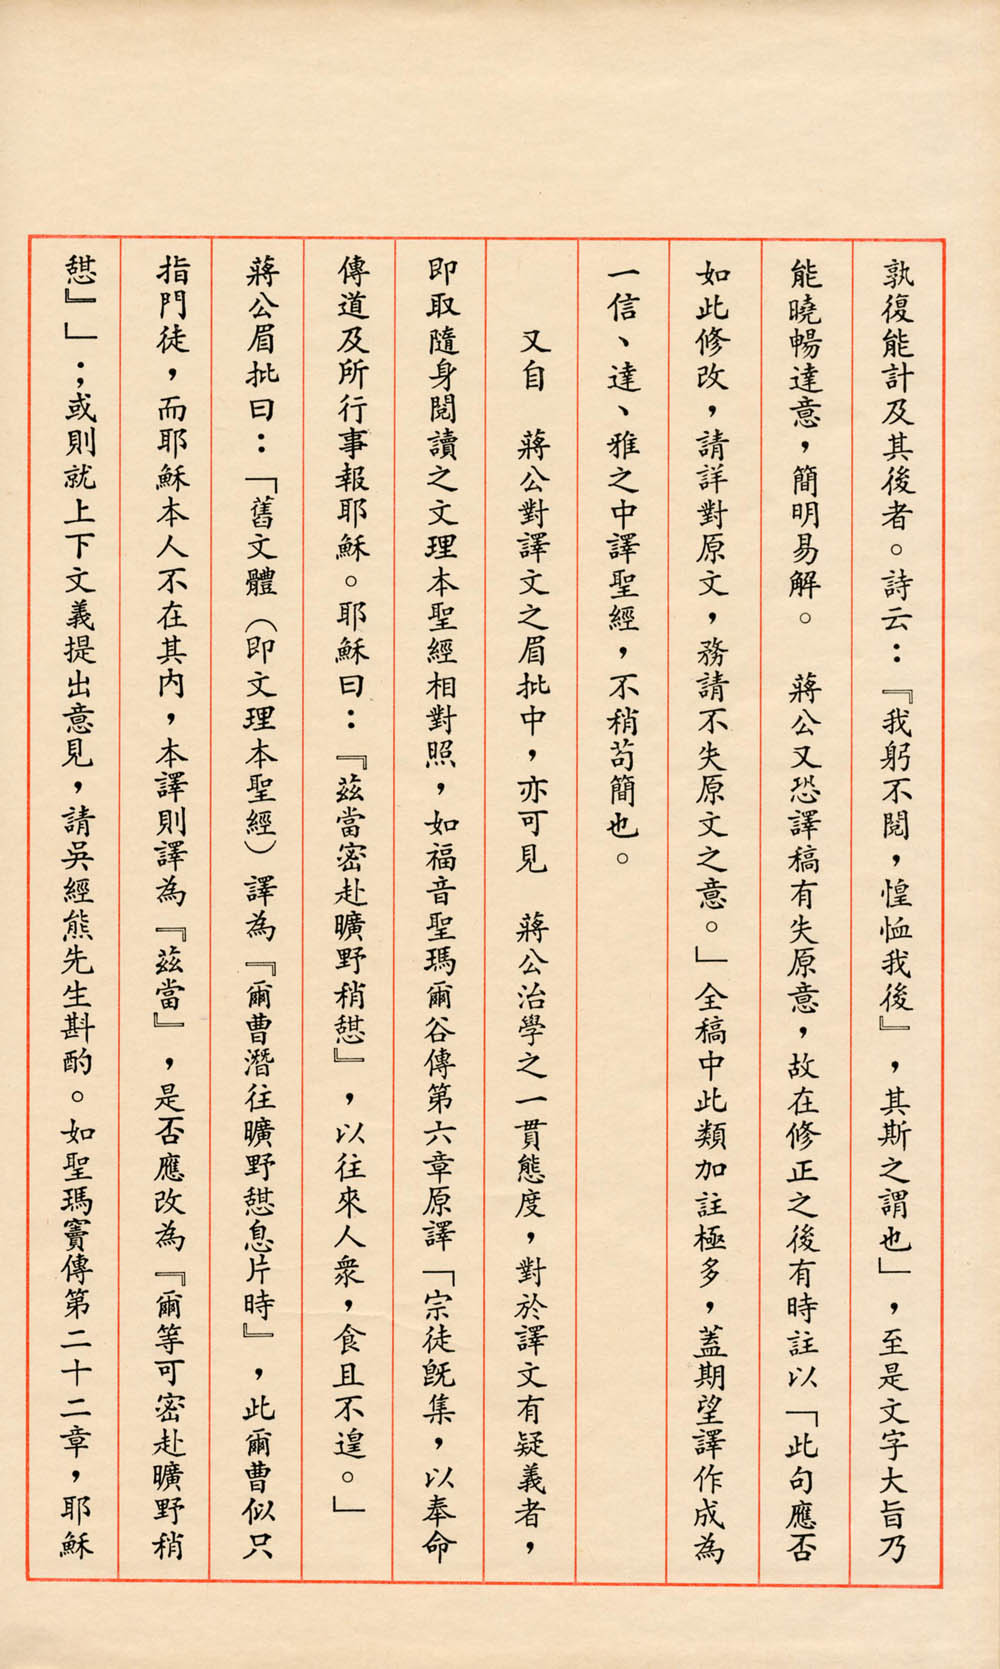 孰復能計及其後者。詩云：『我躬不閱，惶恤我後』，其斯之謂也」，至是文字大旨乃
能曉暢達意，簡明易解。　蔣公又恐譯稿有失原意，故在修正之後有時註以「此句應否
如此修改，請詳對原文，務請不失原文之意。」全稿中此類加註極多，蓋期望譯作成為
一信、達、雅之中譯聖經，不稍苟簡也。
又自　蔣公對譯文之眉批中，亦可見　蔣公治學之一貫態度，對於譯文有疑義者，
即取隨身閱讀之文理本聖經相對照，如福音聖瑪爾谷傳第六章原譯「宗徒既集，以奉命
傳道及所行事報耶穌。耶穌曰：『茲當密赴曠野稍憇』，以往來人衆，食且不遑。」
蔣公眉批曰：「舊文體（即文理本聖經）譯為『爾曹潛往曠野憇息片時』，此爾曹似只
指門徒，而耶穌本人不在其內，本譯則譯為『茲當』，是否應改為『爾等可密赴曠野稍
憇』」；或則就上下文義提出意見，請吳經熊先生斟酌。如聖瑪竇傳第二十二章，耶穌